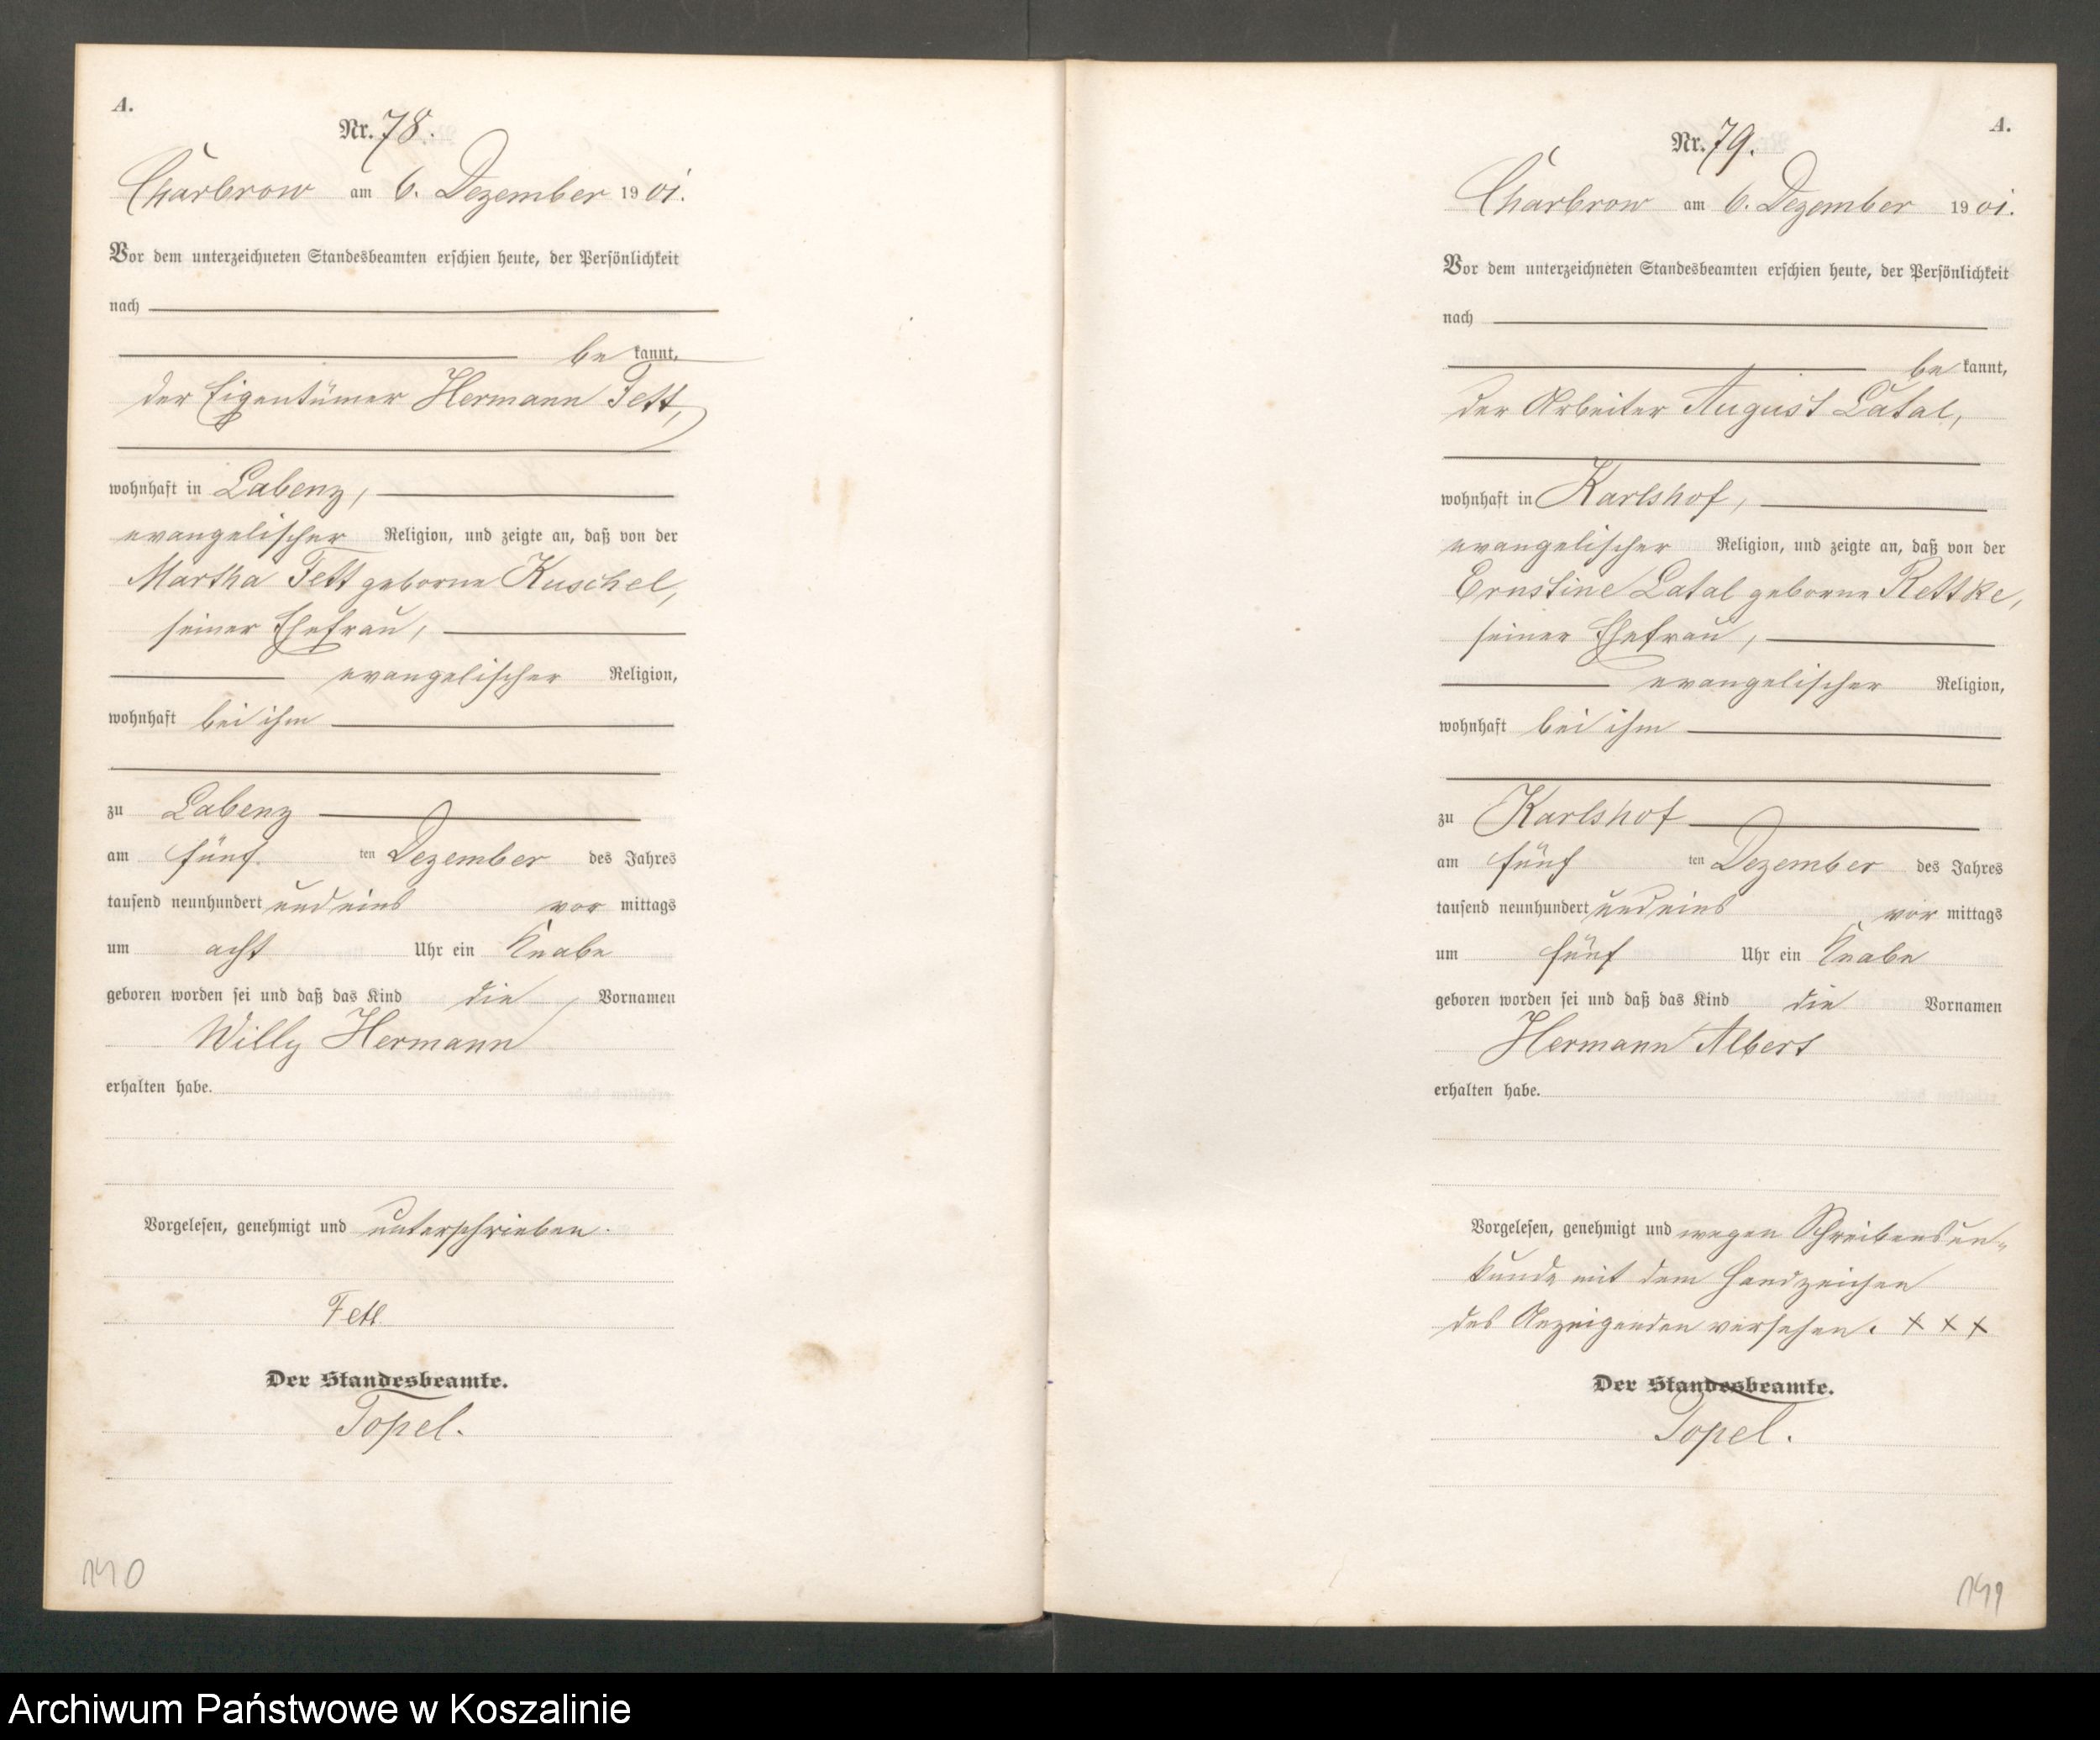 A.
Nr. 78.
Charbrow am 6. Dezember 1901.
Vor dem unterzeichneten Standesbeamten erschien heute, der Persönlichkeit
nach
be kannt,
der Eigentümer Hermann Fett,
wohnhaft in Labenz,
evangelischer Religion, und zeigte an, daß von der
Martha Fett geborne Kuschel,
seiner Ehefrau,
evangelischer Religion,
wohnhaft bei ihm
zu Labenz
am fünf ten Dezember des Jahres
tausend neunhundert und eins vor mittags
um acht Uhr ein Knabe
geboren worden sei und daß das Kind die Vornamen
Willy Hermann
erhalten habe.
Vorgelesen, genehmigt und unterschrieben.
Fett
Der Standesbeamte.
Topel.
140
A.
Nr. 79.
Charbrow am 6. Dezember 1901.
Vor dem unterzeichneten Standesbeamten erschien heute, der Persönlichkeit
nach
be kannt,
der Arbeiter August Latal,
wohnhaft in Karlshof,
evangelischer Religion, und zeigte an, daß von der
Ernstine Latal geborne Rettke,
seiner Ehefrau,
evangelischer Religion,
wohnhaft bei ihm
zu Karlshof
am fünf ten Dezember des Jahres
tausend neunhundert und eins vor mittags
um fünf Uhr ein Knabe
geboren worden sei und daß das Kind die Vornamen
Hermann Albert
erhalten habe.
Vorgelesen, genehmigt und wegen Schreibensun-
kunde mit dem Handzeichen
des Anzeigenden versehen. X X X
Der Standesbeamte.
Topel.
141
Archiwum Państwowe w Koszalinie